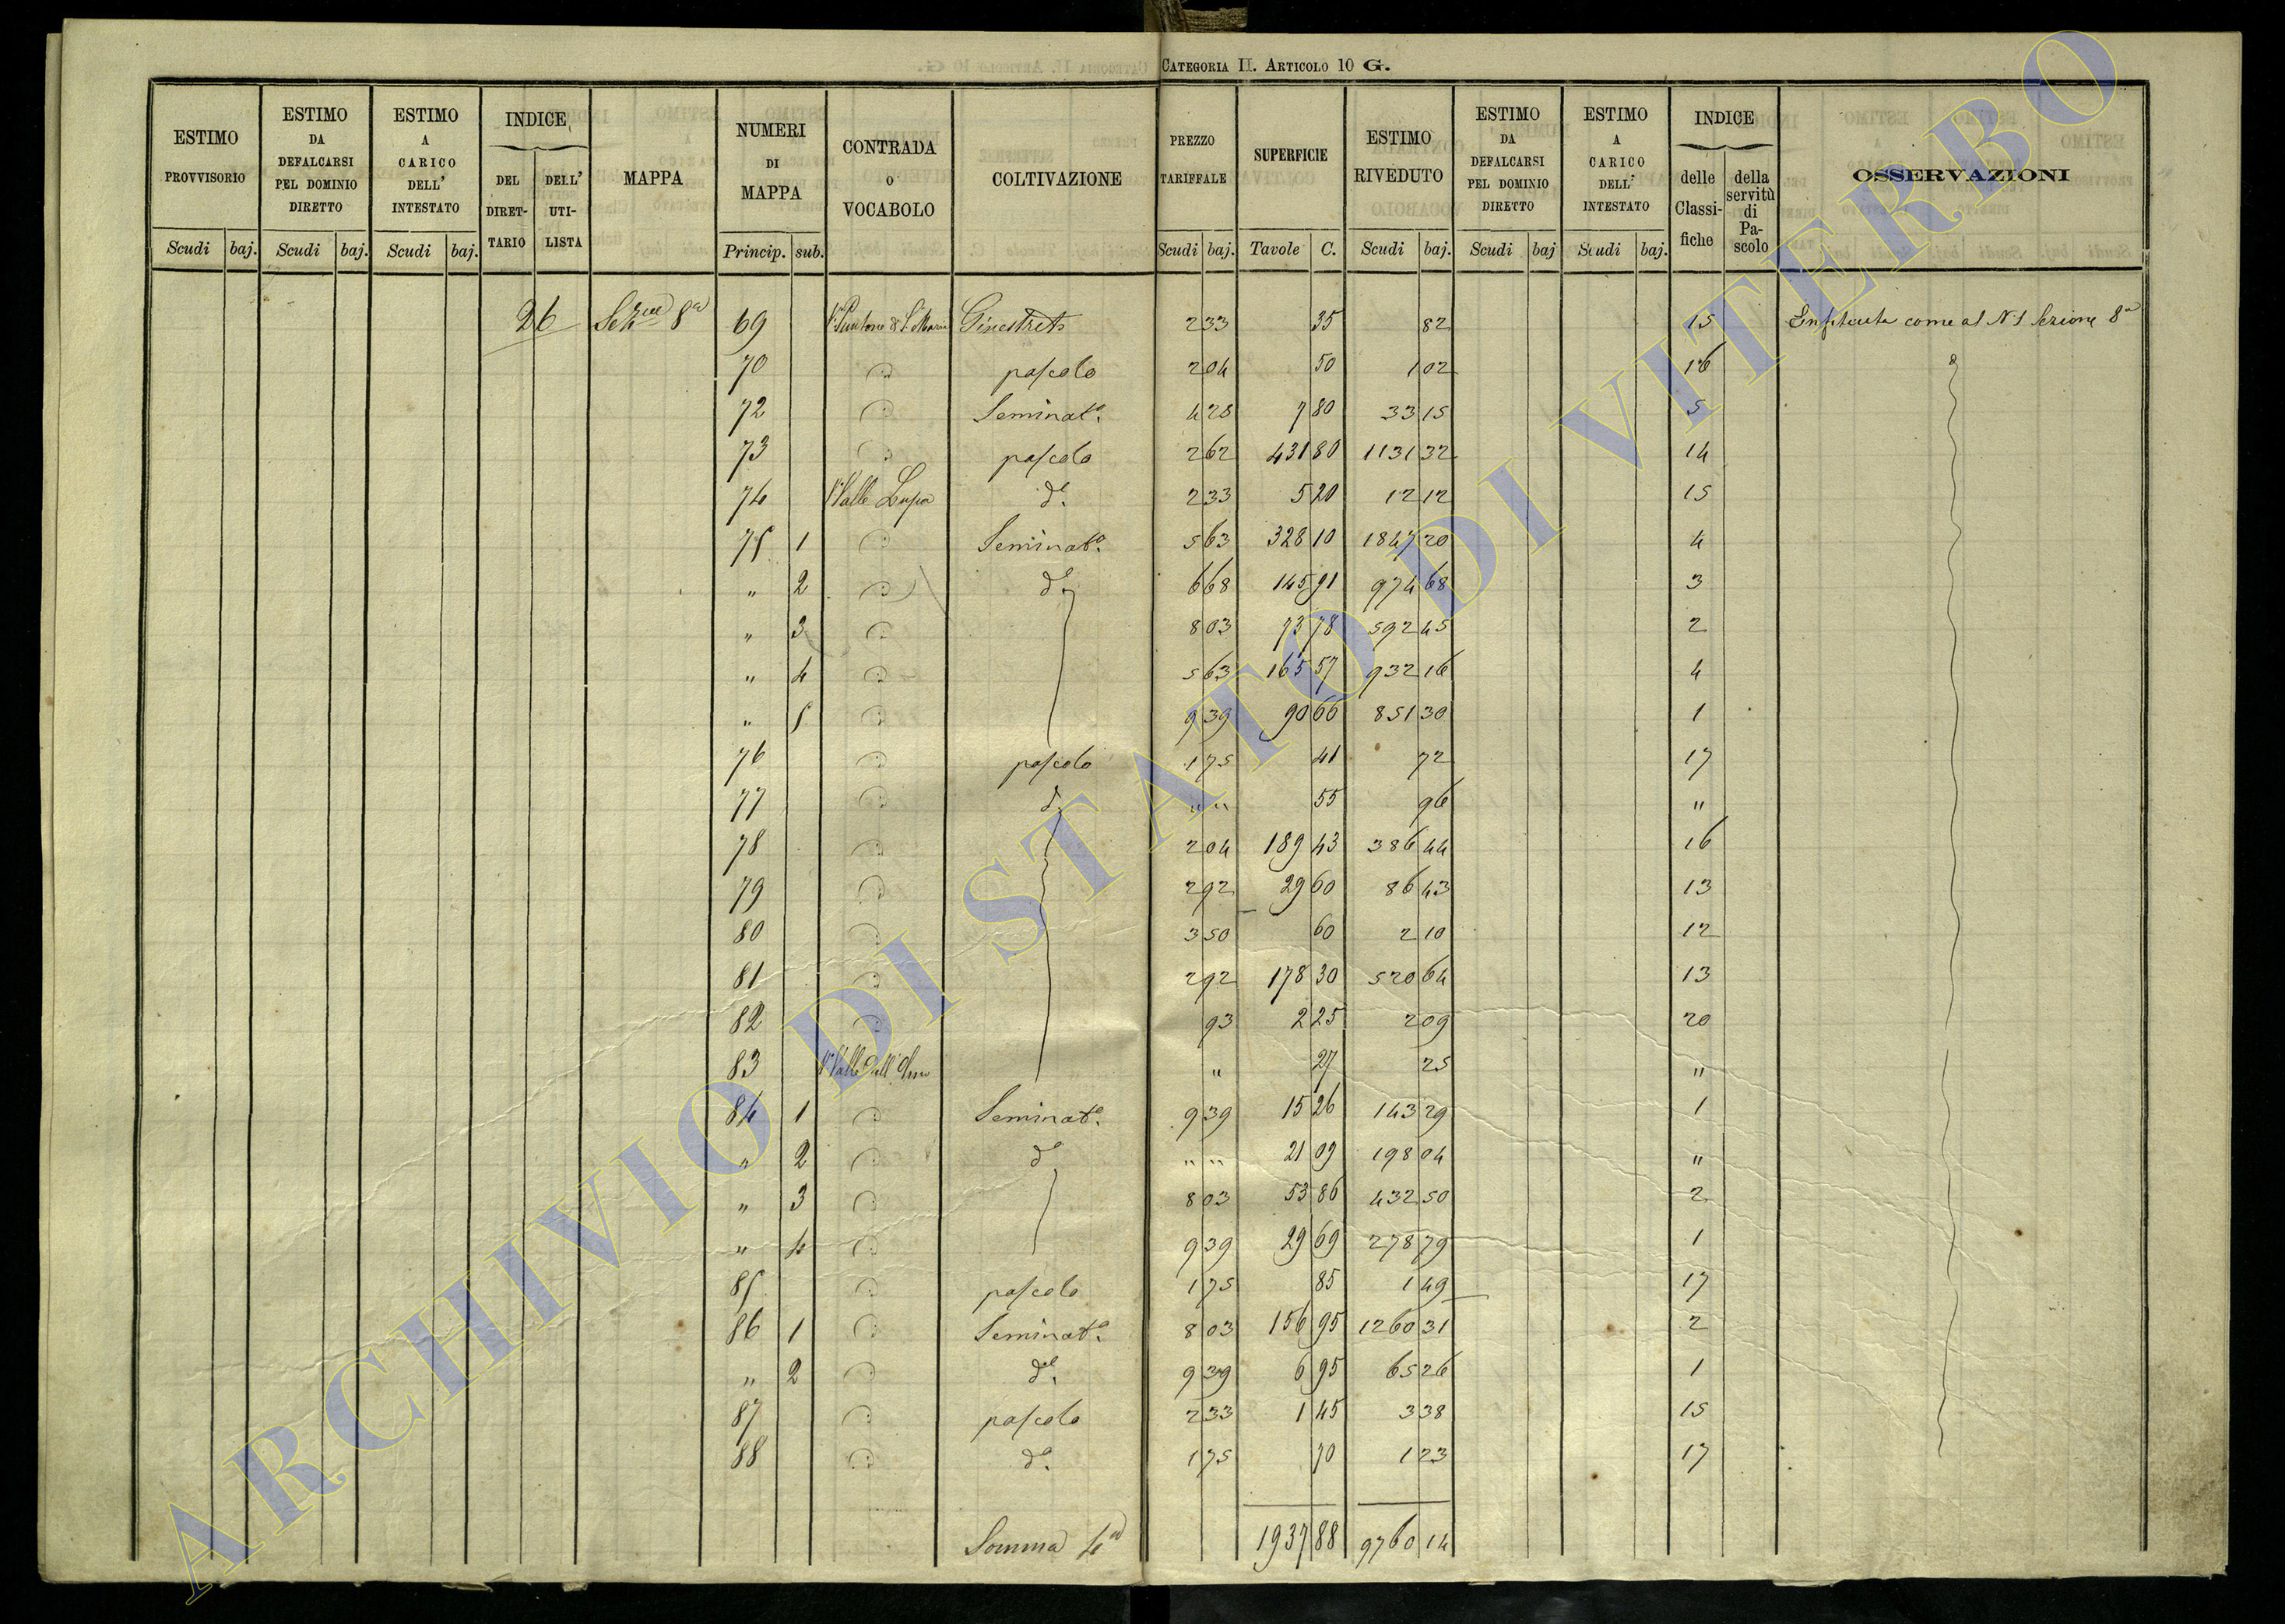 CATEGORIA II. ARTICOLO 10 G.
ESTIMO PROVVISORIO Scudi baj.
ESTIMO DA DEFALCARSI PEL DOMINIO DIRETTO Scudi baj.
ESTIMO A CARICO DELL' INTESTATO Scudi baj.
INDICE DEL DIRETTARIO DELL' UTILISTA
MAPPA
NUMERI DI MAPPA Princip. sub.
CONTRADA O VOCABOLO
COLTIVAZIONE
PREZZO TARIFFALE Scudi baj.
SUPERFICIE Tavole C.
ESTIMO RIVEDUTO Scudi baj.
ESTIMO DA DEFALCARSI PEL DOMINIO DIRETTO Scudi baj
ESTIMO A CARICO DELL' INTESTATO Scudi baj.
INDICE delle Classifiche della servitù di Pascolo
OSSERVAZIONI
26 Sezne 8a 69 Puntone di S. Ginestreto 2 33 35 82 15 Enfiteuta come al N 1 Sezione 8a
70 pascolo 2 04 50 1 02 16
72 Seminato. 4 25 7 80 33 15 5
73 pascolo 2 62 431 80 1131 32 14
74 Valle Lupa do. 2 33 5 20 12 12 15
75 1 Seminato. 5 63 328 10 1847 20 4
" 2 do 6 68 145 91 974 68 3
" 3 8 03 73 78 592 45 2
" 4 5 63 165 57 932 16 4
" 5 9 39 90 66 851 30 1
76 pascolo 1 75 41 72 17
77 do " " 55 96 "
78 2 04 189 43 386 44 16
79 2 92 29 60 86 43 13
80 3 50 60 2 10 12
81 2 92 178 30 520 64 13
82 93 2 25 2 09 20
83 Valle dell' " 27 25 "
84 1 Seminato. 9 39 15 26 143 29 1
" 2 do " " 21 09 198 04 "
" 3 8 03 53 86 432 50 2
" 4 9 39 29 69 278 79 1
85 pascolo 1 75 85 1 49 17
86 1 Seminato. 8 03 156 95 1260 31 2
" 2 do. 9 39 6 95 65 26 1
87 pascolo 2 33 1 45 3 38 15
88 do. 1 75 70 1 23 17
Somma 4a 1937 88 9760 14
ARCHIVIO DI STATO DI VITERBO